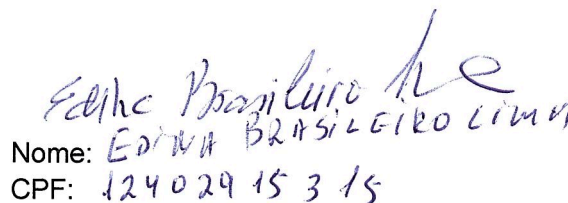 Edina Brasileiro
Nome: EDINA BRASILEIRO LIMA
CPF: 124 029 15 3 15